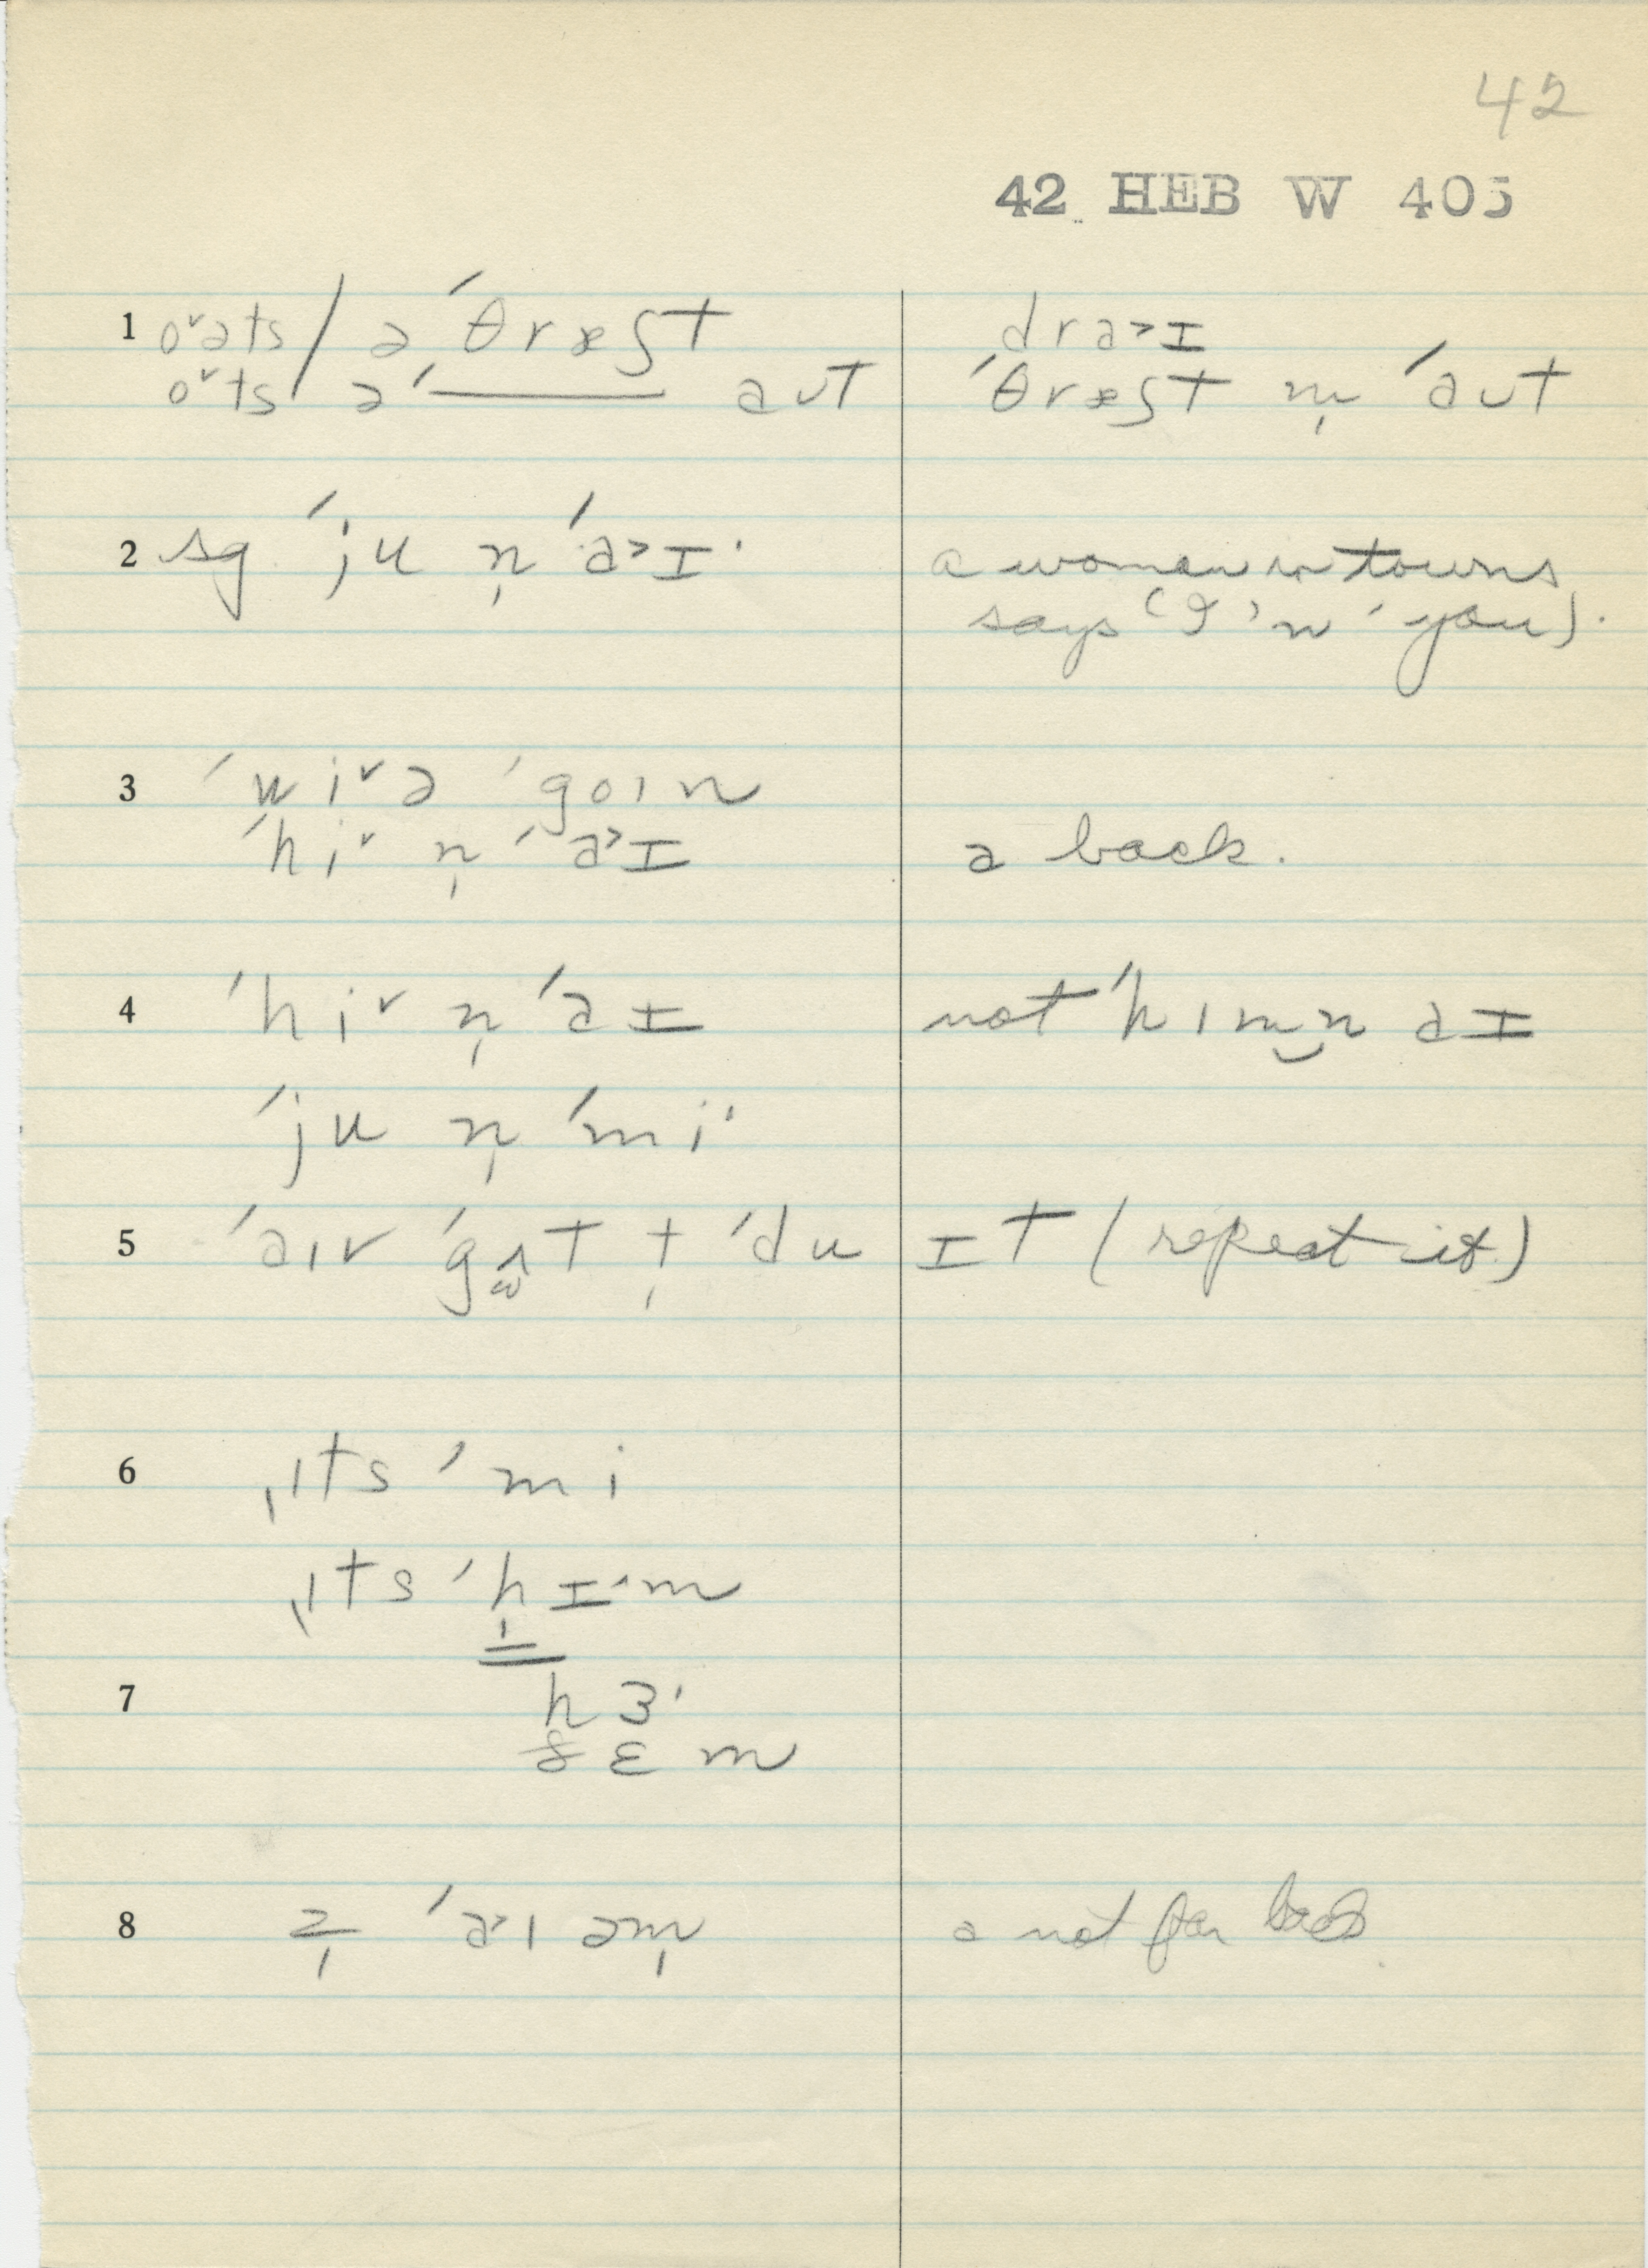 42
42 HEB W 405
1 o˅əts / ə ˈθræʃt dra˃ɪ
o˅ts / əˈ——— aʊt ˈθræʃt m̩ ˈaʊt
2 sg ˈju n̩ ˈa˃ɪ· a woman in towns
says (I 'n' you).
3 ˈwi˅ə ˈgoɪn
ˈhi˅ n̩ ˈa˃ɪ a back.
4 ˈhi˅ n̩ ˈaɪ not ˈhɪm‿n aɪ
ˈju n̩ ˈmi·
5 ˈaɪv ˈgʌt t̩ ˈdu ɪt (repeat it)
6 ˌɪts ˈmi
ˌɪts ˈhɪ·m
7 hɜ·
ðɛm
8 z̩ ˈa˃ɪ əm̩ a not far back